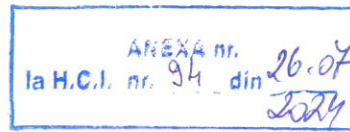 ANEXA nr.
la H.C.l. nr. 94 din 26.07
2024